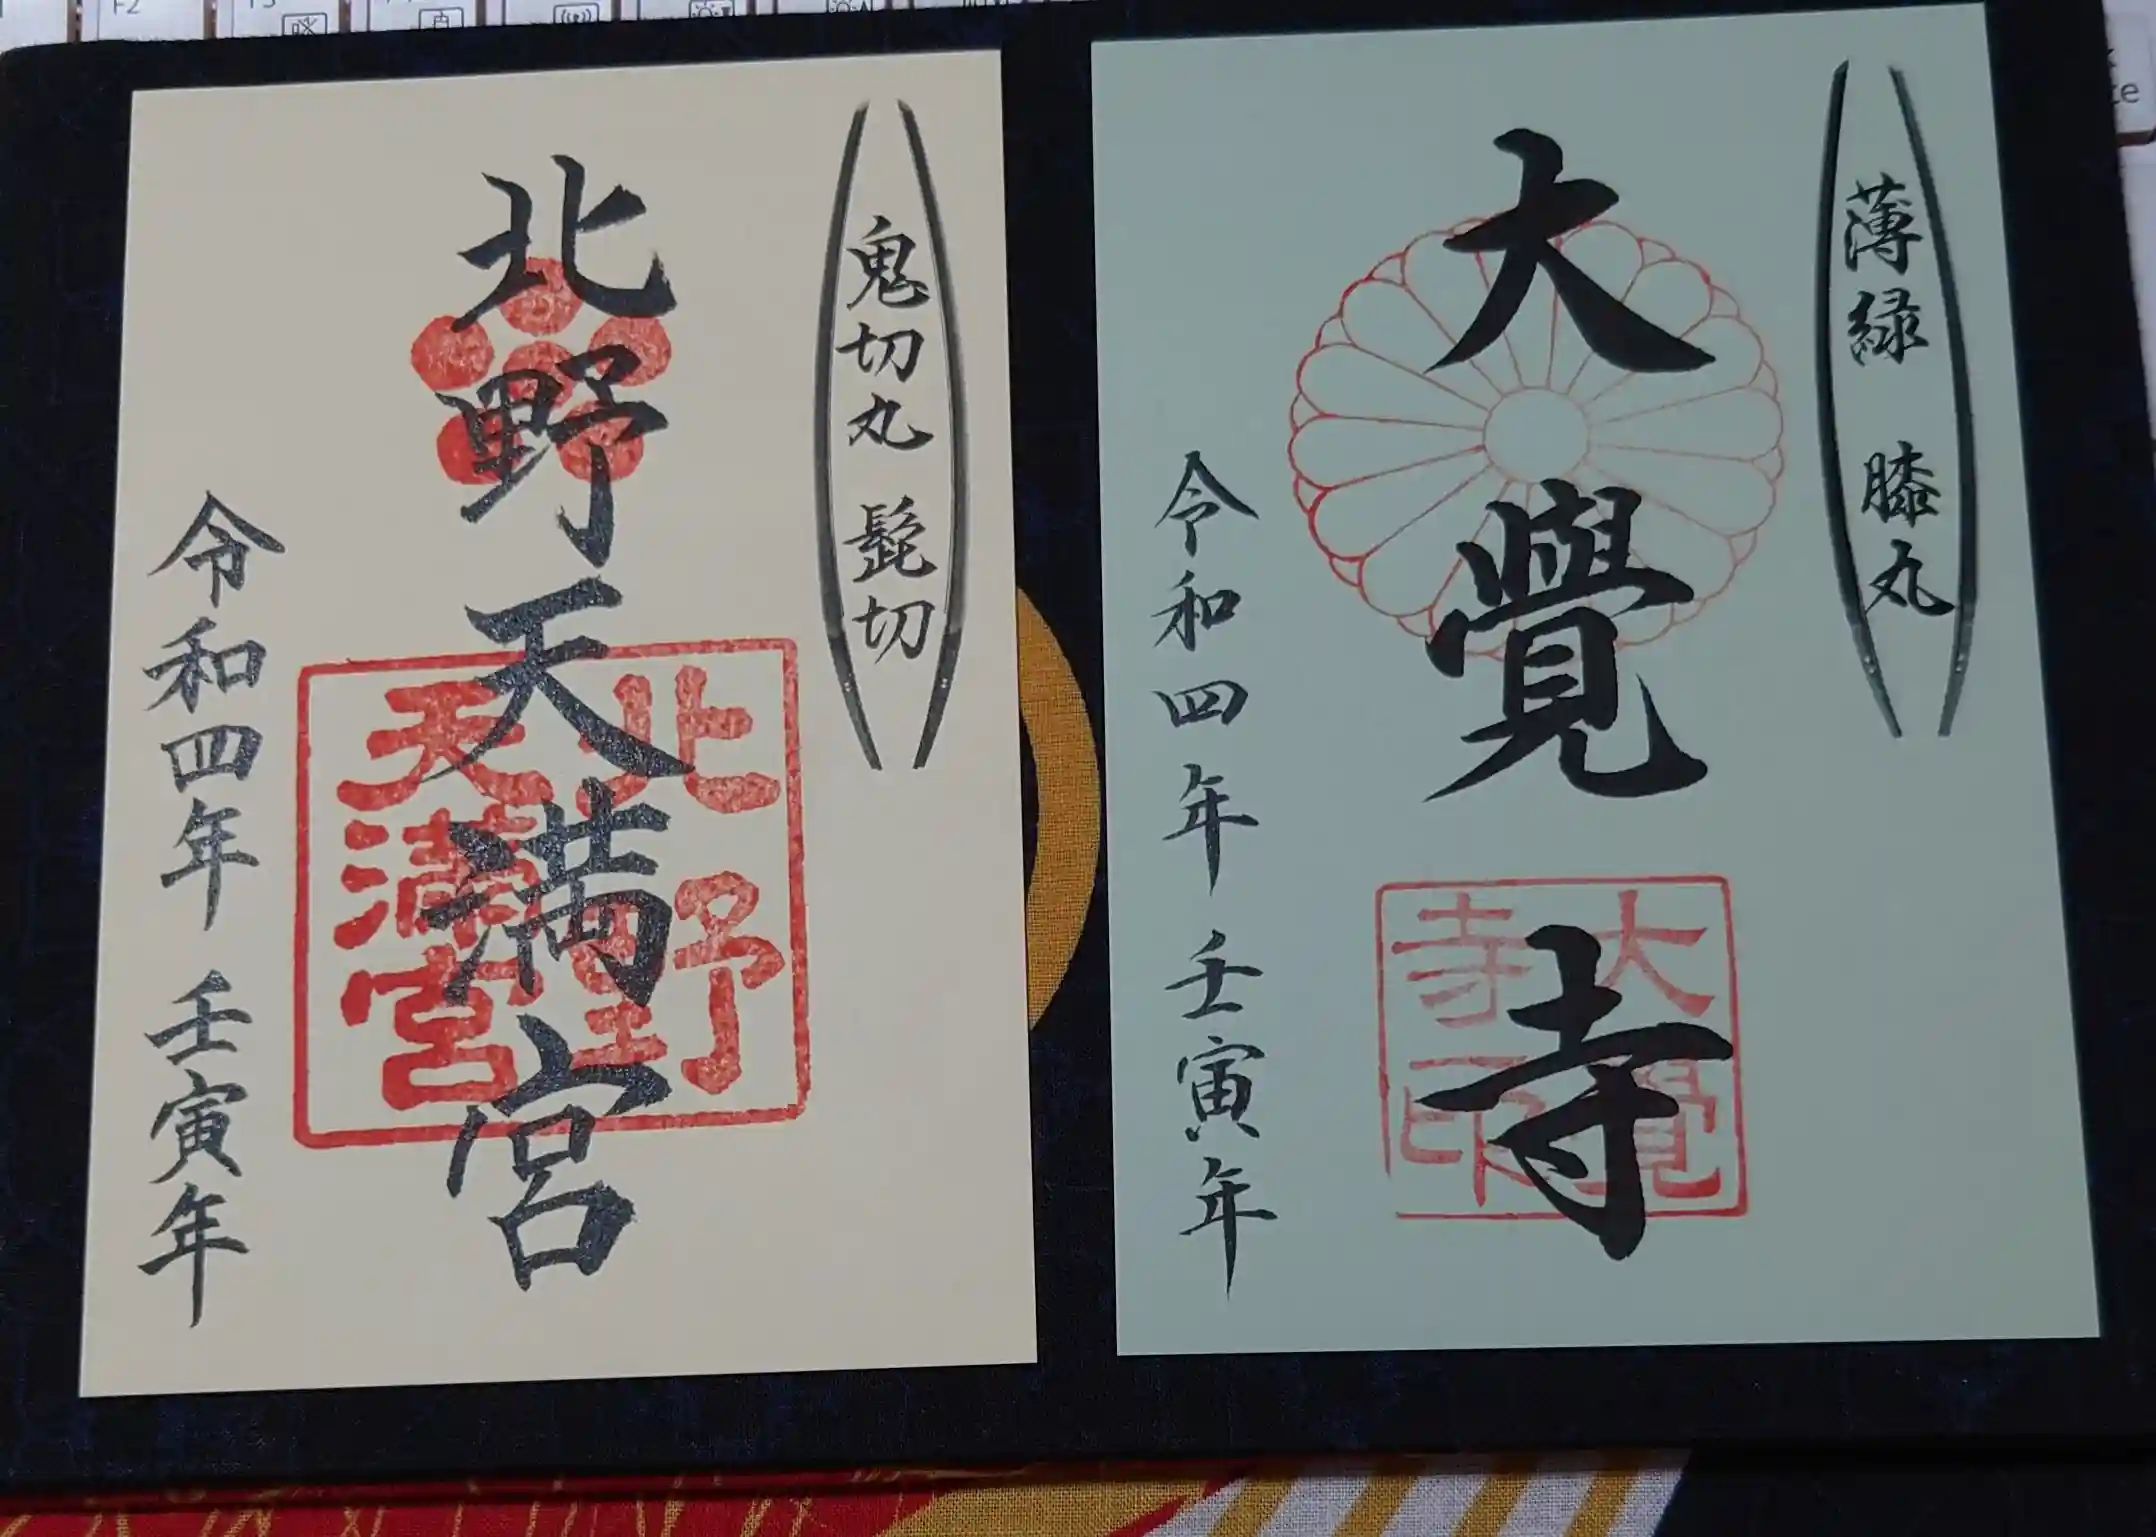 鬼切丸 髭切
北野天満宮
北野
天満宮
令和四年 壬寅年
薄緑 膝丸
大覺寺
大覺
寺印
令和四年 壬寅年
F2